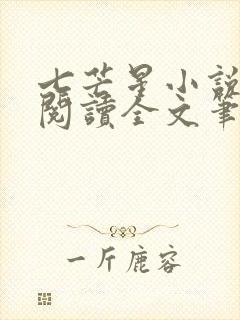 七芒星小說
閱讀全文筆
一斤鹿容